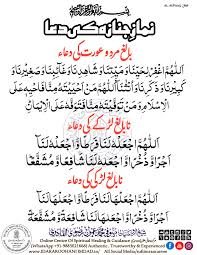 نماز جنازہ کی دعا
بالغ مرد و عورت کی دعاء
اَللّٰهُمَّ اغْفِرْ لِحَيِّنَا وَمَيِّتِنَا وَشَاهِدِنَا وَغَائِبِنَا وَصَغِيْرِنَا وَ
كَبِيْرِنَا وَذَكَرِنَا وَاُنْثَانَا اَللّٰهُمَّ مَنْ اَحْيَيْتَهٗ مِنَّا فَاَحْيِهٖ عَلَى
الْاِسْلَامِ وَمَنْ تَوَفَّيْتَهٗ مِنَّا فَتَوَفَّهٗ عَلَى الْاِيْمَانِ
نابالغ لڑکے کی دعاء
اَللّٰهُمَّ اجْعَلْهُ لَنَا فَرَطًا وَّاجْعَلْهُ لَنَا
اَجْرًا وَّذُخْرًا وَّاجْعَلْهُ لَنَا شَافِعًا وَّمُشَفَّعًا
نابالغ لڑکی کی دعاء
اَللّٰهُمَّ اجْعَلْهَا لَنَا فَرَطًا وَّاجْعَلْهَا لَنَا
اَجْرًا وَّذُخْرًا وَّاجْعَلْهَا لَنَا شَافِعَةً وَّمُشَفَّعَةً
Online Centre Of Spiritual Healing & Guidance